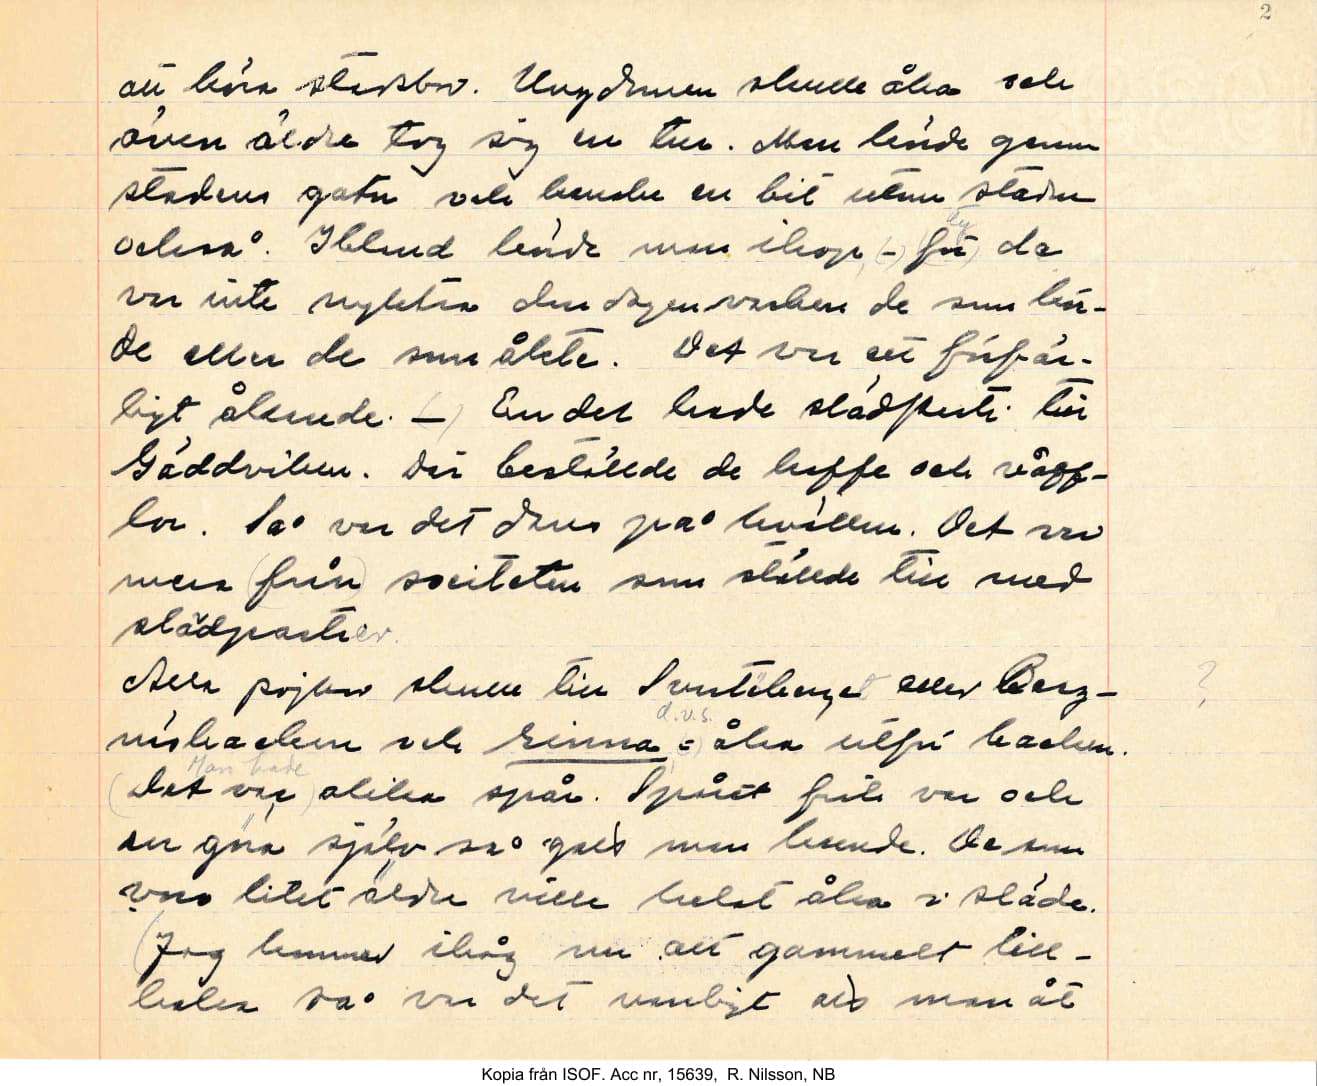 2
att köra stadsbor. Ungdomen skulle åka och
även äldre tog sig en tur. Man körde genom
stadens gator och kanske en bit utom staden
också. Ibland körde man ihop, (-) (för) ty de
var inte nyktra den dagen varken de som kör-
de eller de som åkte. Det var ett förfär-
ligt åkande. (-) En del hade slädparti till
Gäddviken. Där beställde de kaffe och våff-
lor. Så var det dans på kvällen. Det var
mera (från) societeten som ställde till med
slädpartier.
Alla pojkar skulle till
näsbacken och rinna = d.v.s. åka utför backen.
(Det var) Man hade olika spår. Spåret fritt var och
en göra själv så gott man kunde. De som
voro litet äldre ville helst åka i släde.
(Jag kommer ihåg nu att gammalt till-
baka så var det vanligt att man åt
?
Kopia från ISOF. Acc nr, 15639, R. Nilsson, NB